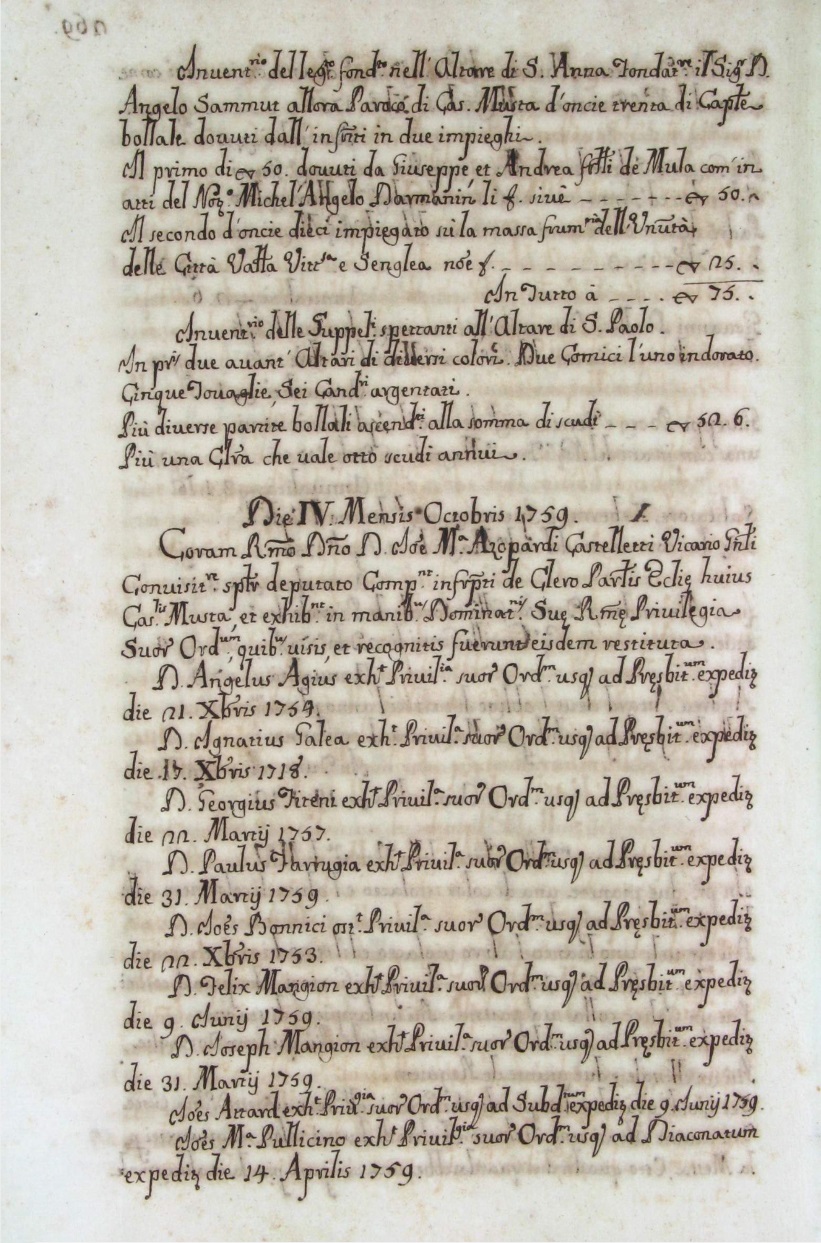 Inuent.rio del leg.to fond.to nell' Altare di S. Anna Fondat.re il Sig.r D.
Angelo Sammut allora Paroco di Cas. Musta d'oncie trenta di Cap.le
bollale douuti dall' inf̃riti in due impieghi.
Il primo di ▽ 50. douuti da Giuseppe et Andrea f̃r̃lli de Mula com' in
atti del Not.o Michel' Angelo Darmanin li f. siuè – – – – – – – ▽ 50. ~
Il secondo d'oncie dieci impiegato sù la massa frum.ria dell' Vñutà
delle Città Vall̃a Vitt.sa e Senglea nõe f. – – – – – – – – – ▽ 25. ~
In Tutto à – – – . ▽ 75. ~
Inuent.rio delle Suppel.i spettanti all' Altare di S. Paolo.
In pr.is due auant' Altari di differ̃ri colori. Due Cornici l'uno indorato.
Cinque Touaglie, Sei Cand.ri argentati.
Più diuerse partite bollali ascend.ti alla somma di scudi – – – ▽ 52. 6.
Più una Cl̃ra che uale otto scudi annui.
Die IV. Mensis Octobris 1759.
Coram R̃mo Dño D. Joẽ M.a Azopardi Castelletti Vicario Gñli
Conuisit.re spl̃r deputato Comp.nt infrp̃ti de Clero Par̃lis Ecclię huius
Cas.lis Musta, et exhib.nt in manib.s Dominat.nis Suę R̃mę Priuilegia
Suor' Ord.um, quib.s uisis, et recognitis fuerunt eisdem restituta.
D. Angelus Agius exh.t Priuil.ia suor' Ord.m usq; ad Pręsbit.um expediz
die 21. Xb̃ris 1754.
D. Ignatius Galea exh.t Priuil.a suor' Ord.m usq; ad Pręsbit.um expediz
die 17. Xb̃ris 1718.
D. Georgius Fiteni exh.t Priuil.a suor' Ord.m usq; ad Pręsbit.um expediz
die 22. Martij 1757.
D. Paulus Farrugia exh.t Priuil.a suor' Ord.m usq; ad Pręsbit.um expediz
die 31. Martij 1759.
D. Joẽs Bonnici Priuil.a suor' Ord.m usq; ad Pręsbit.um expediz
die 22. Xb̃ris 1753.
D. Felix Mangion exh.t Priuil.a suor' Ord.m usq; ad Pręsbit.um expediz
die 9. Junij 1759.
D. Joseph Mangion exh.t Priuil.a suor' Ord.m usq; ad Pręsbit.um expediz
die 31. Martij 1759.
Joẽs Attard exh.t Priuil.gia suor' Ord.m usq; ad Subd.num expediz die 9. Junij 1759.
Joẽs M.a Pullicino exh.t Priuil.gia suor' Ord.m usq; ad Diaconatum
expediz die 14. Aprilis 1759.